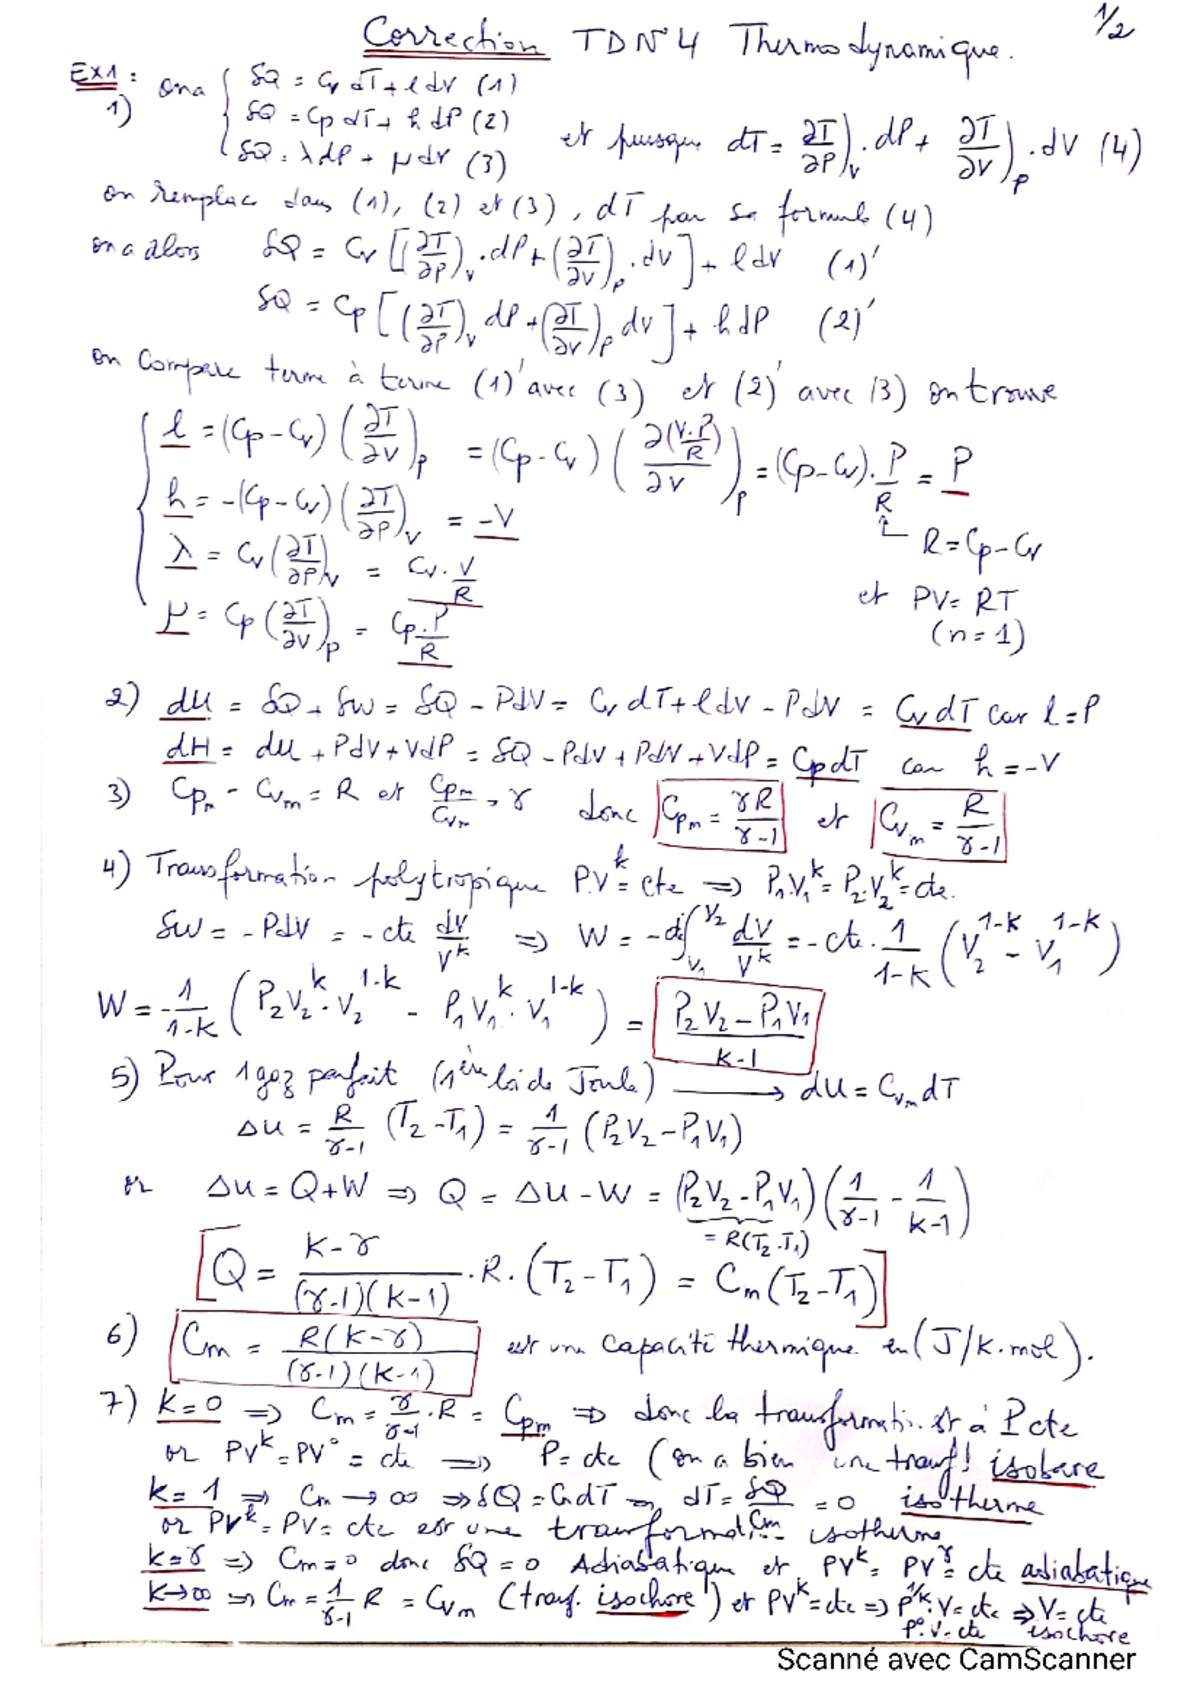 1/2
Correction TD N°4 Thermodynamique.
Ex1 :
1) on a { δQ = Cv dT + l dV (1)
δQ = Cp dT + h dP (2)
δQ = λ dP + μ dV (3)
et puisque dT = ∂T/∂P)v . dP + ∂T/∂V)p . dV (4)
on remplace dans (1), (2) et (3), dT par sa formule (4)
on a alors δQ = Cv [(∂T/∂P)v . dP + (∂T/∂V)p . dV] + l dV (1)'
δQ = Cp [(∂T/∂P)v dP + (∂T/∂V)p dV] + h dP (2)'
on compare terme à terme (1)' avec (3) et (2)' avec (3) on trouve
l = (Cp - Cv) (∂T/∂V)p = (Cp - Cv) (∂(V.P/R)/∂V)p = (Cp - Cv) . P/R = P
h = -(Cp - Cv) (∂T/∂P)v = -V
R = Cp - Cv
λ = Cv (∂T/∂P)v = Cv . V/R
et PV = RT
μ = Cp (∂T/∂V)p = Cp . P/R
(n = 1)
2) dU = δQ + δW = δQ - PdV = Cv dT + l dV - PdV = Cv dT car l = P
dH = dU + PdV + VdP = δQ - PdV + PdV + VdP = Cp dT car h = -V
3) Cpm - Cvm = R et Cpm/Cvm = γ donc Cpm = γR/(γ-1) et Cvm = R/(γ-1)
4) Transformation polytropique P.V^k = cte ⇒ P1.V1^k = P2.V2^k = cte.
δW = -PdV = -cte dV/V^k ⇒ W = -cte ∫V1^V2 dV/V^k = -cte . 1/(1-k) (V2^(1-k) - V1^(1-k))
W = -1/(1-k) (P2V2^k . V2^(1-k) - P1V1^k . V1^(1-k)) = (P2V2 - P1V1)/(k-1)
5) Pour 1 gaz parfait (1ère loi de Joule) → dU = Cvm dT
ΔU = R/(γ-1) (T2 - T1) = 1/(γ-1) (P2V2 - P1V1)
or ΔU = Q + W ⇒ Q = ΔU - W = (P2V2 - P1V1) (1/(γ-1) - 1/(k-1))
= R(T2 - T1)
[Q = (k-γ)/((γ-1)(k-1)) . R . (T2 - T1) = Cm (T2 - T1)]
6) Cm = R(k-γ)/((γ-1)(k-1)) est une capacité thermique en (J/K.mol).
7) k = 0 ⇒ Cm = γ/(γ-1) . R = Cpm ⇒ donc la transformation est à P cte
or PV^k = PV° = cte ⇒ P = cte (on a bien une transf! isobare
k = 1 ⇒ Cm → ∞ ⇒ δQ = Cm dT ⇒ dT = δQ/Cm = 0 isotherme
or PV^k = PV = cte est une transformation isotherme
k = γ ⇒ Cm = 0 donc δQ = 0 Adiabatique et PV^k = PV^γ = cte adiabatique
k → ∞ ⇒ Cm = 1/(γ-1) R = Cvm (transf. isochore) et PV^k = cte ⇒ P^(1/k) . V = cte ⇒ V = cte
P° . V = cte isochore
Scanné avec CamScanner